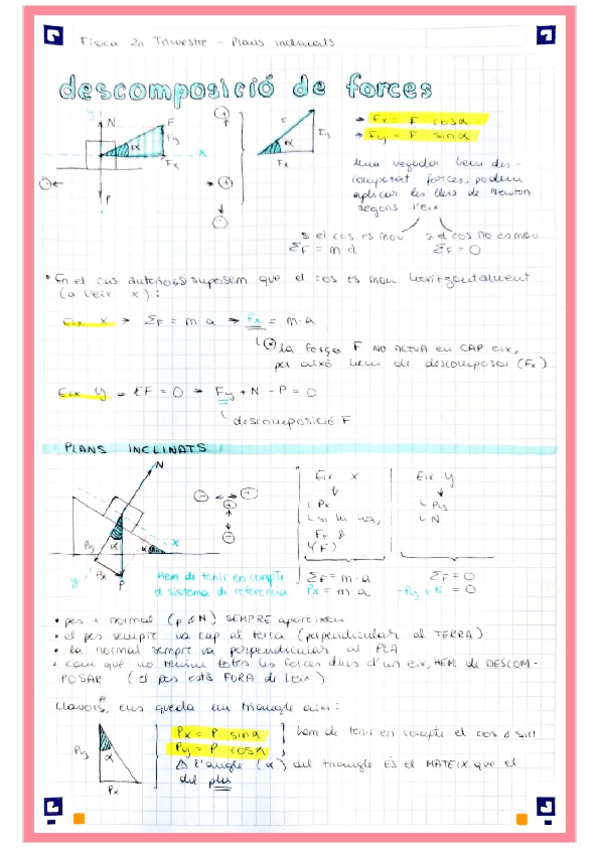 Física 2n Trimestre - Plans inclinats
descomposició de forces
y N F
Fy
α x
Fx
P
+
- +
-
F Fy
α
Fx
→ Fx = F cosα
→ Fy = F sinα
una vegada hem des-
composat forces, podem
aplicar les lleis de Newton
segons l'eix
si el cos es mou si el cos no es mou
ΣF = m·a ΣF = 0
• En el cas anterior, suposem que el cos es mou horitzontalment
(a l'eix x):
Eix X → ΣF = m·a → Fx = m·a
la força F NO ACTUA en CAP eix,
per això hem de descomposar (Fx)
Eix Y → ΣF = 0 → Fy + N - P = 0
descomposició F
PLANS INCLINATS
N
- +
+
-
x
α α
Py
Px
y P
Hem de tenir en compte
el sistema de referència
Eix X Eix Y
Px Py
si hi ha, N
ΣF = m·a ΣF = 0
Px = m a -Py + N = 0
• pes i normal (P & N) SEMPRE apareixen
• el pes sempre va cap al terra (perpendicular al TERRA)
• la normal sempre va perpendicular al PLA
• com que no tenim totes les forces dins d'un eix, HEM de DESCOM-
POSAR (el pes està FORA de l'eix)
Llavors, ens queda un triangle així:
Py α
Px
Px = P sinα hem de tenir en compte el cos & sin!
Py = P cosα
l'angle (α) del triangle és el MATEIX que el
del pla